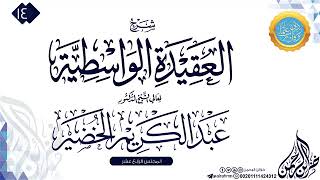 ١٤
شرح
العقيدة الواسطية
لمعالي الشيخ الدكتور
عبد الكريم الخضير
المجلس الرابع عشر
00201111424312